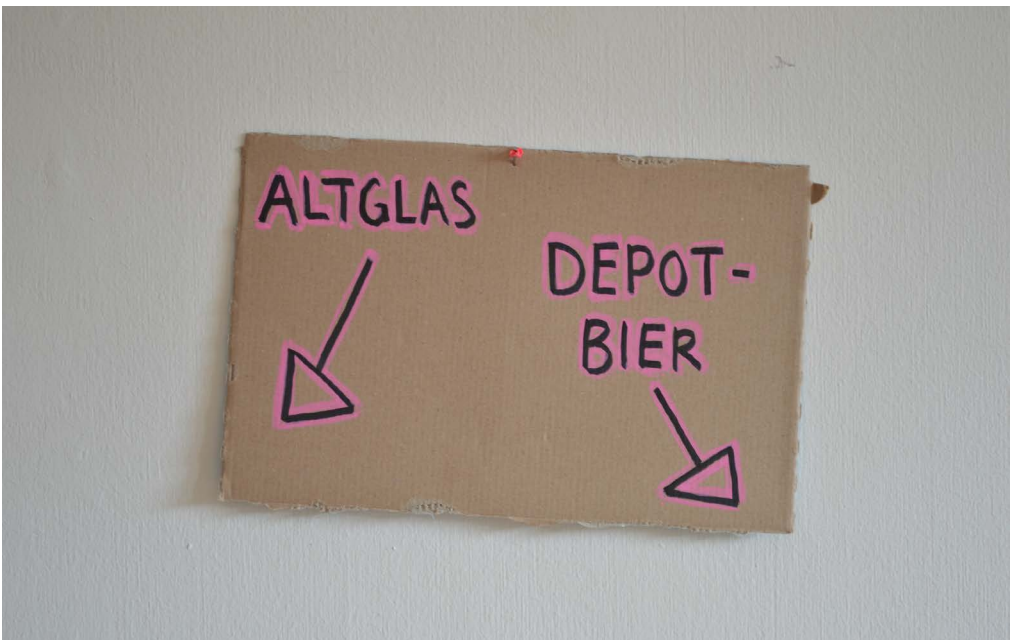 ALTGLAS
DEPOT-
BIER